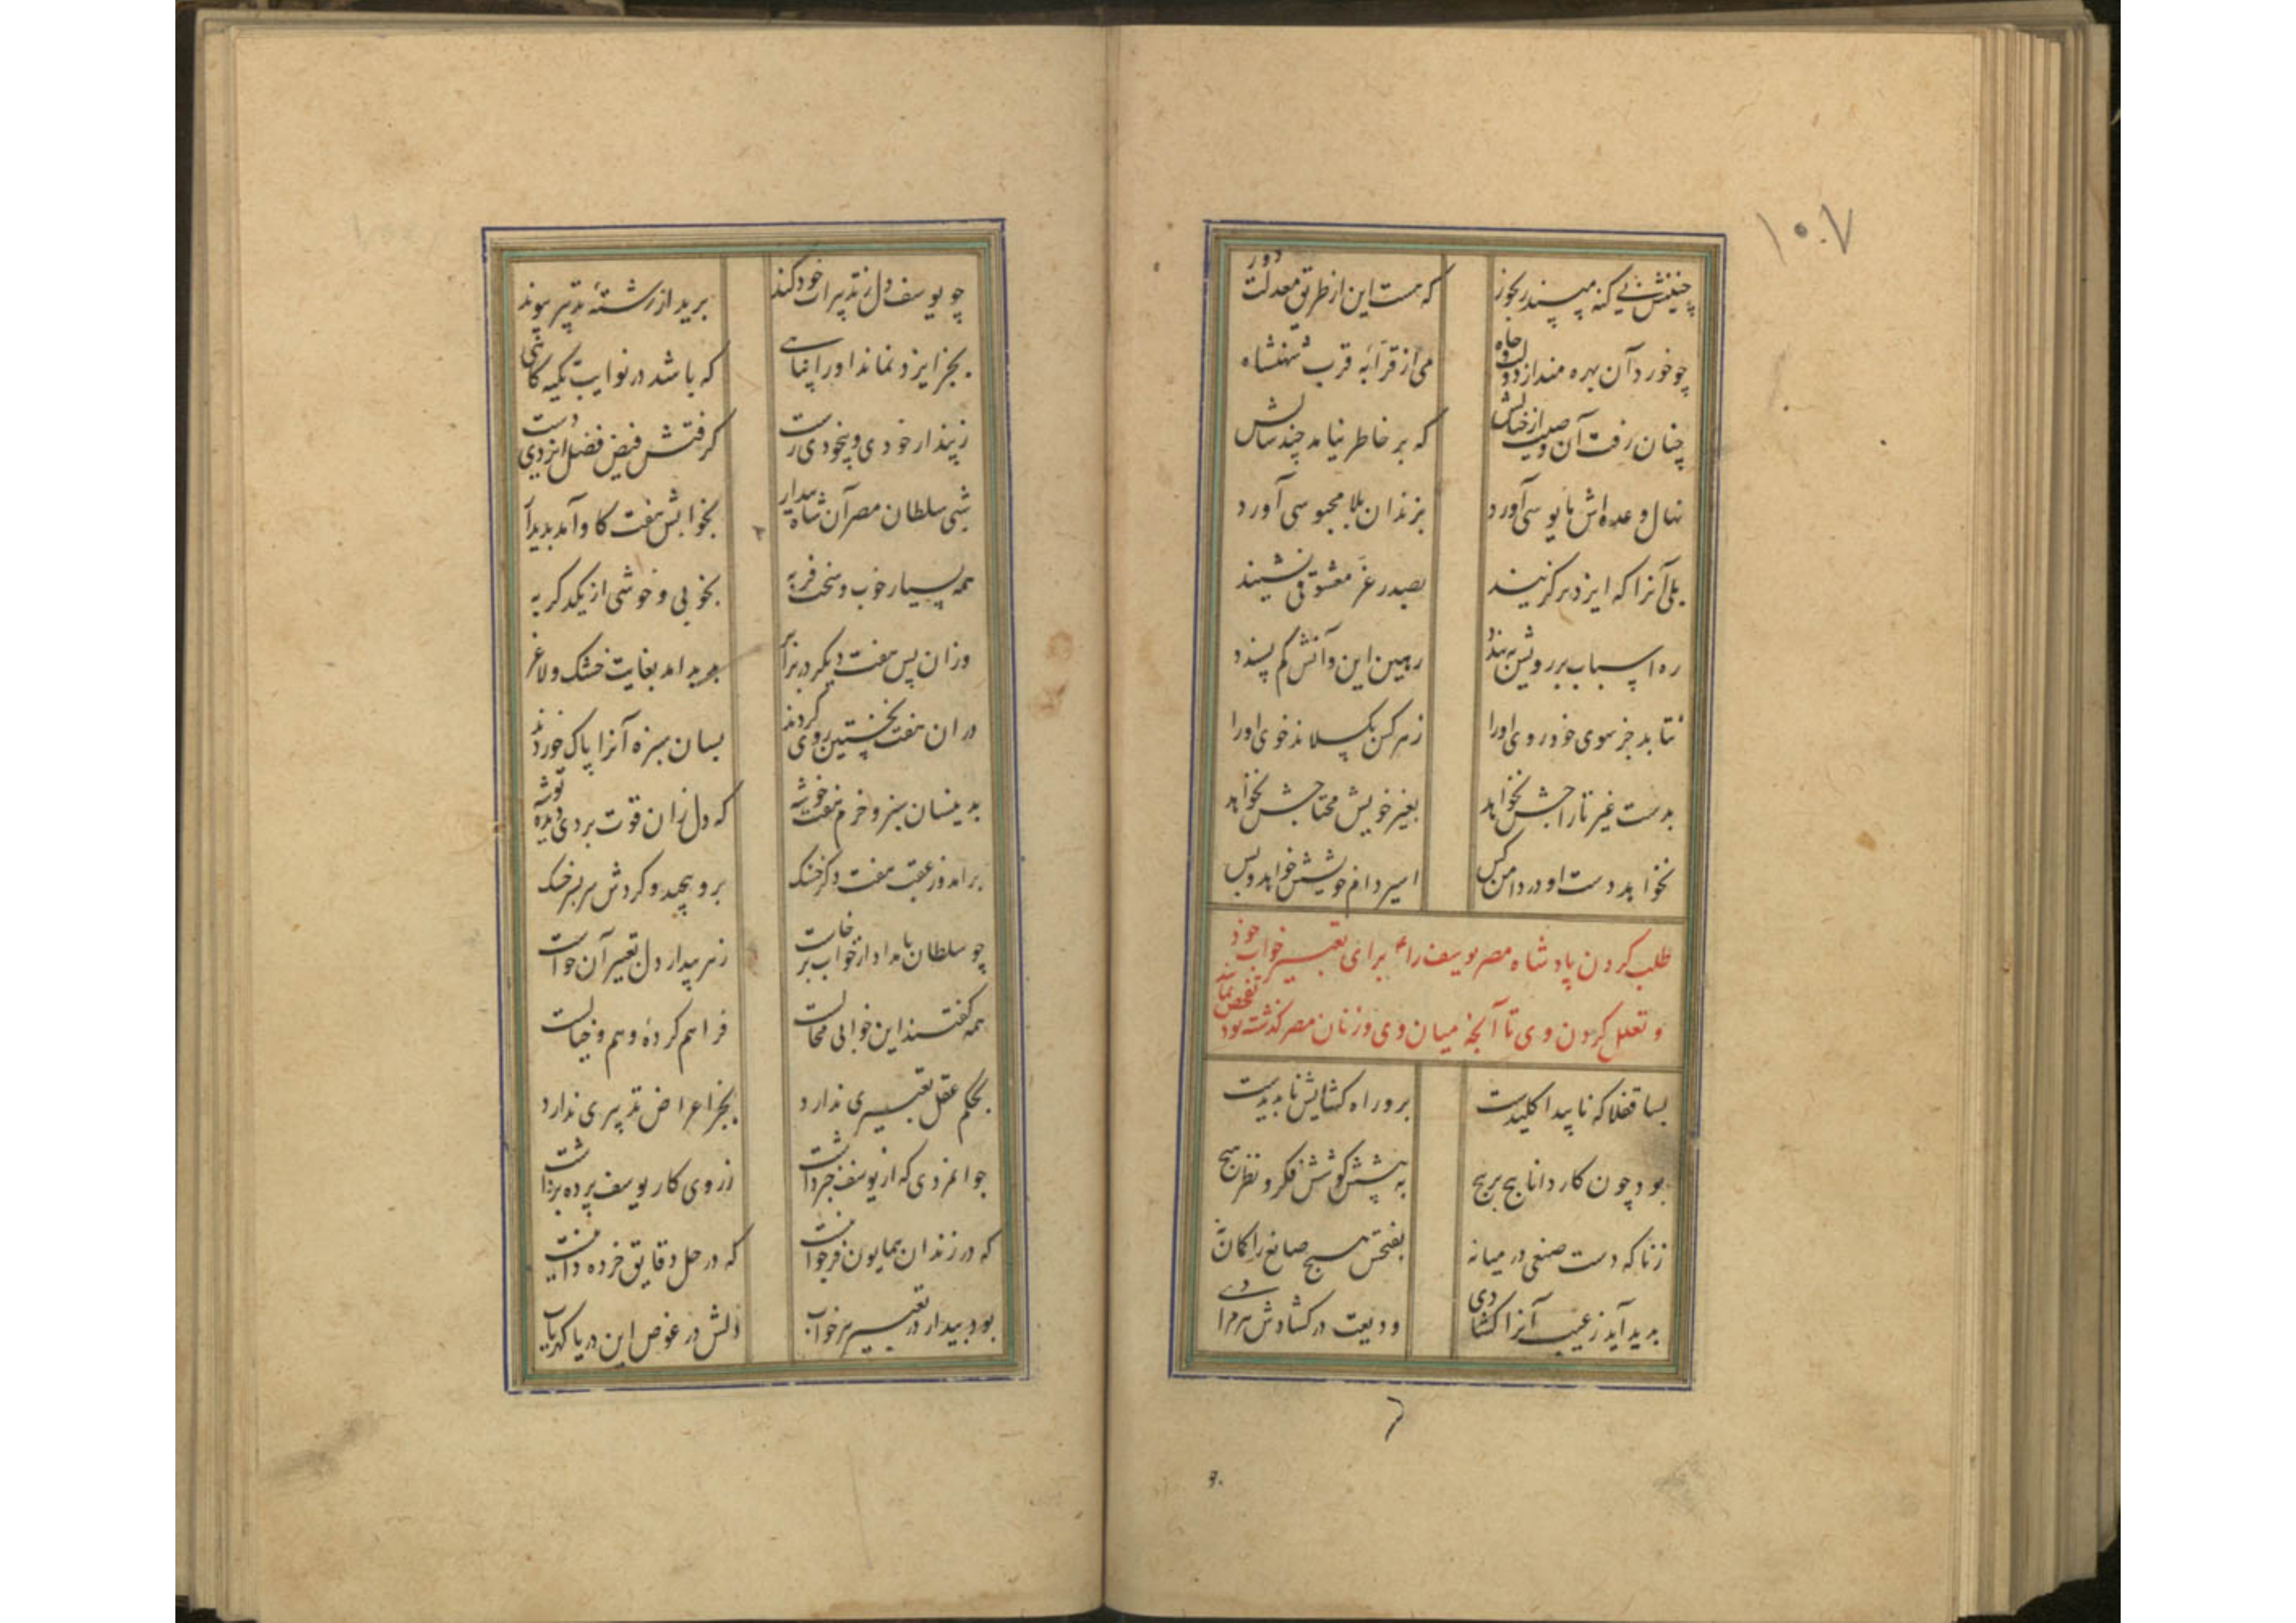 ۱۰۷
چنینش بی‌کنه مپسند رنجور که هست این از طریق معدلت دور
چو خورد آن بهره مند از دولت و جاه می از قرابهٔ قرب شهنشاه
چنان رفت آن وصیت از خیالش که بر خاطر نیامد چند سالش
نهال وعده‌اش مایوسی آورد بزندان بلا محبوسی آورد
بلی آنرا که ایزد برگزیند بصدر عز معشوقی نشیند
ره اسباب بر رویش به بندد رهین این و آنش کم پسندد
نتابد جز سوی خود روی او را ز هر کس بگسلاند خوی او را
بدست غیر تاراجش نخواهد بغیر خویش محتاجش نخواهد
نخواهد دست او در دامن کس اسیر دام خویشش خواهد و بس
طلب کردن پادشاه مصر یوسف را ع برای تعبیر خواب خود
و تعلل کردن وی تا آنچه میان وی و زنان مصر گذشته بود تفحص نمایند
بسا قفلا که ناپیدا کلیدست برو راه گشایش ناپدیدست
بود چون کار دانا پیچ بر پیچ به پیشش کوشش فکر و نظر هیچ
ز ناگه دست صنعی در میانه بفتحش هیچ صانع را گمان نه
بدید آید ز غیب آنرا گشادی ودیعت در گشادش هر مرادی
چو یوسف دل ز تدبیرات خود کند برید از رشتهٔ تدبیر پیوند
بجز ایزد نماند او را پناهی که باشد در نوایب تکیه کاهی
ز پندار خودی و بیخودی رست گرفتش فیض فضل ایزدی دست
شبی سلطان مصر آن شاه بیدار بخوابش هفت کاو آمد پدیدار
همه بسیار خوب و سخت فربه بخوبی و خوشی از یکدگر به
وزان پس هفت دیگر در برابر پدید آمد بغایت خشک و لاغر
در ان هفت نخستین روی کردند بسان سبزه آنرا پاک خوردند
بدینسان سبز و خرم هفت خوشه که دل زان قوت بردی دیده توشه
برآمد وز عقب هفت دگر خشک برو پیچید و کردش سر بسر خشک
چو سلطان بامداد از خواب برخاست ز هر بیدار دل تعبیر آن خواست
همه گفتند این خوابی محالست فراهم کردهٔ وهم و خیالست
بحکم عقل تعبیری ندارد بجز اعراض تدبیری ندارد
جوانمردی که از یوسف خبر داشت ز روی کار یوسف پرده برداشت
که در زندان همایون فر جوانیست که در حل دقایق خرده دانیست
بود بیدار در تعبیر هر خواب دلش در غوص این دریا گهریاب